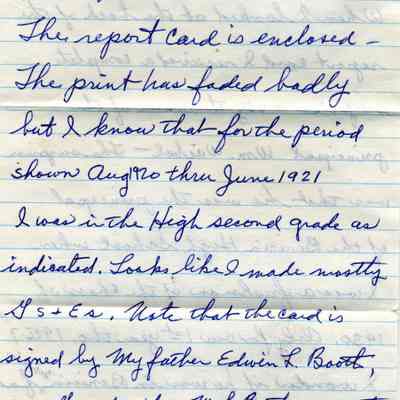 The report card is enclosed –
The print has faded badly
but I know that for the period
shown Aug 1920 thru June 1921
I was in the High second grade as
indicated. Looks like I made mostly
G s + E s. Note that the card is
signed by My father Edwin L. Booth,